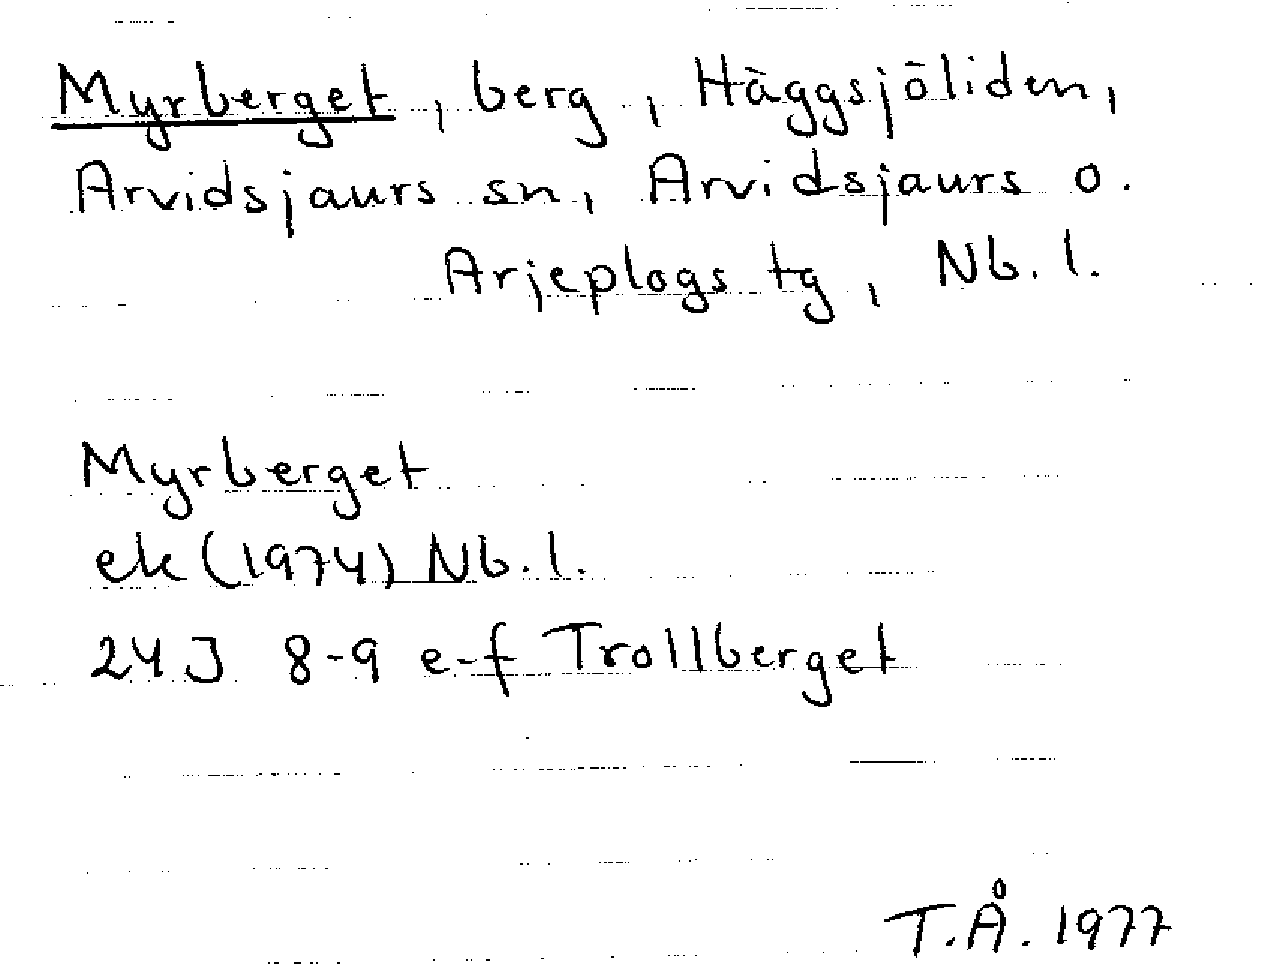 Myrberget, berg, Häggsjöliden,
Arvidsjaurs sn, Arvidsjaurs o.
Arjeplogs tg, Nb. l.
Myrberget
ek (1974) Nb. l.
24J 8-9 e-f Trollberget
T.Å. 1977